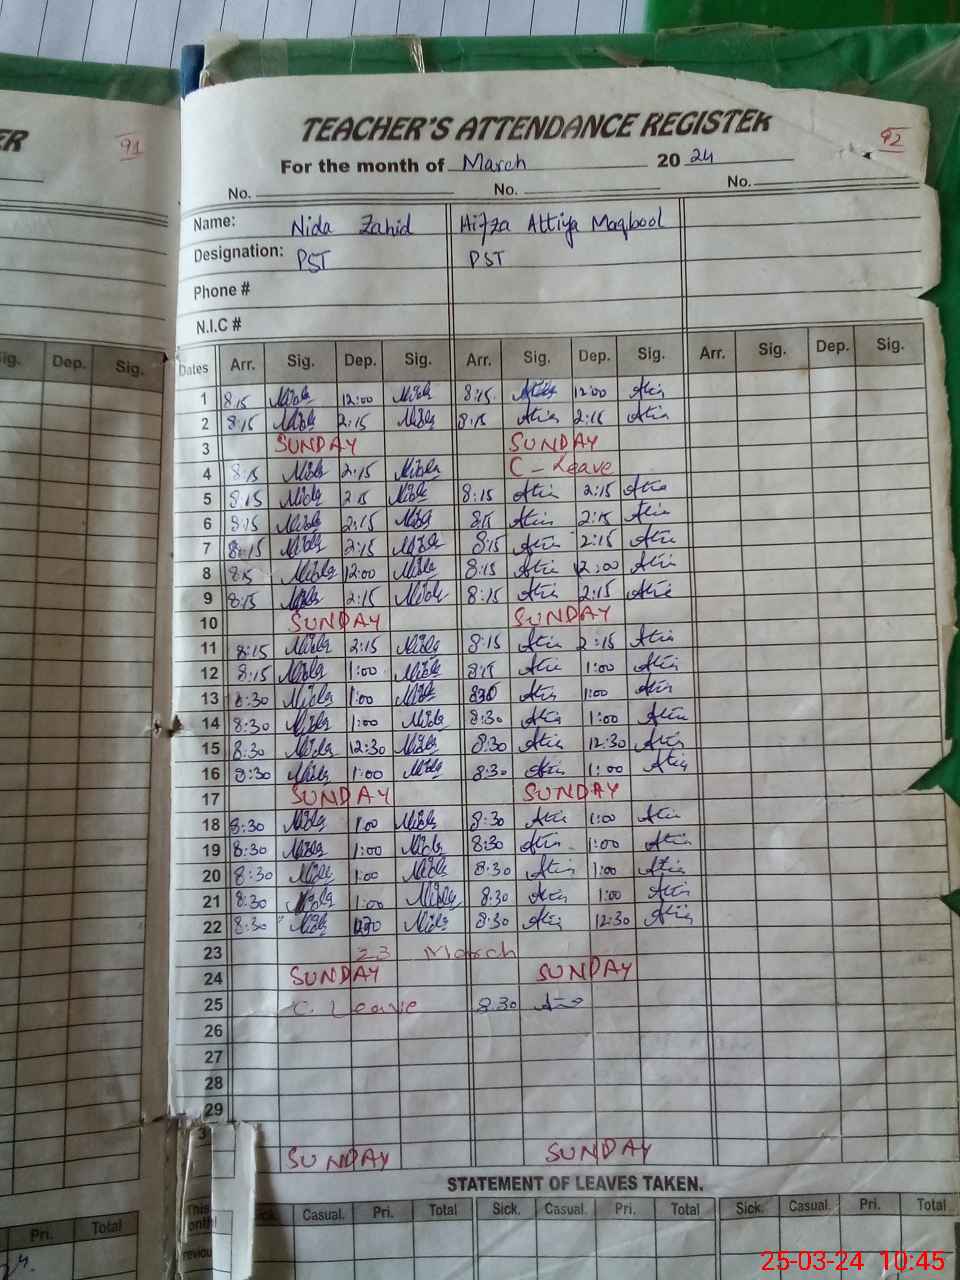 ER 91
TEACHER'S ATTENDANCE REGISTER 92
For the month of March 20 24
No. No. No.
Name: Nida Zahid Hifza Attiya Maqbool
Designation: PST PST
Phone #
N.I.C #
Sig. Dep. Sig. Dates Arr. Sig. Dep. Sig. Arr. Sig. Dep. Sig. Arr. Sig. Dep. Sig.
1 8:15 Nida 12:00 Nida 8:15 Atia 12:00 Atia
2 8:15 Nida 2:15 Nida 8:15 Atia 2:15 Atia
3 SUNDAY SUNDAY
4 8:15 Nida 2:15 Nida C-Leave
5 8:15 Nida 2:15 Nida 8:15 Atia 2:15 Atia
6 8:15 Nida 2:15 Nida 8:15 Atia 2:15 Atia
7 8:15 Nida 2:15 Nida 8:15 Atia 2:15 Atia
8 8:15 Nida 12:00 Nida 8:15 Atia 12:00 Atia
9 8:15 Nida 2:15 Nida 8:15 Atia 2:15 Atia
10 SUNDAY SUNDAY
11 8:15 Nida 2:15 Nida 8:15 Atia 2:15 Atia
12 8:15 Nida 1:00 Nida 8:15 Atia 1:00 Atia
13 8:30 Nida 1:00 Nida 8:30 Atia 1:00 Atia
14 8:30 Nida 1:00 Nida 8:30 Atia 1:00 Atia
15 8:30 Nida 12:30 Nida 8:30 Atia 12:30 Atia
16 8:30 Nida 1:00 Nida 8:30 Atia 1:00 Atia
17 SUNDAY SUNDAY
18 8:30 Nida 1:00 Nida 8:30 Atia 1:00 Atia
19 8:30 Nida 1:00 Nida 8:30 Atia 1:00 Atia
20 8:30 Nida 1:00 Nida 8:30 Atia 1:00 Atia
21 8:30 Nida 1:00 Nida 8:30 Atia 1:00 Atia
22 8:30 Nida Nida 8:30 Atia 12:30 Atia
23 23 March
24 SUNDAY SUNDAY
25 C. Leave 8:30 Atia
26
27
28
29
3
SUNDAY SUNDAY
STATEMENT OF LEAVES TAKEN.
Pri. Total This month Sick. Casual. Pri. Total Sick. Casual. Pri. Total Sick. Casual. Pri. Total
25-03-24 10:45